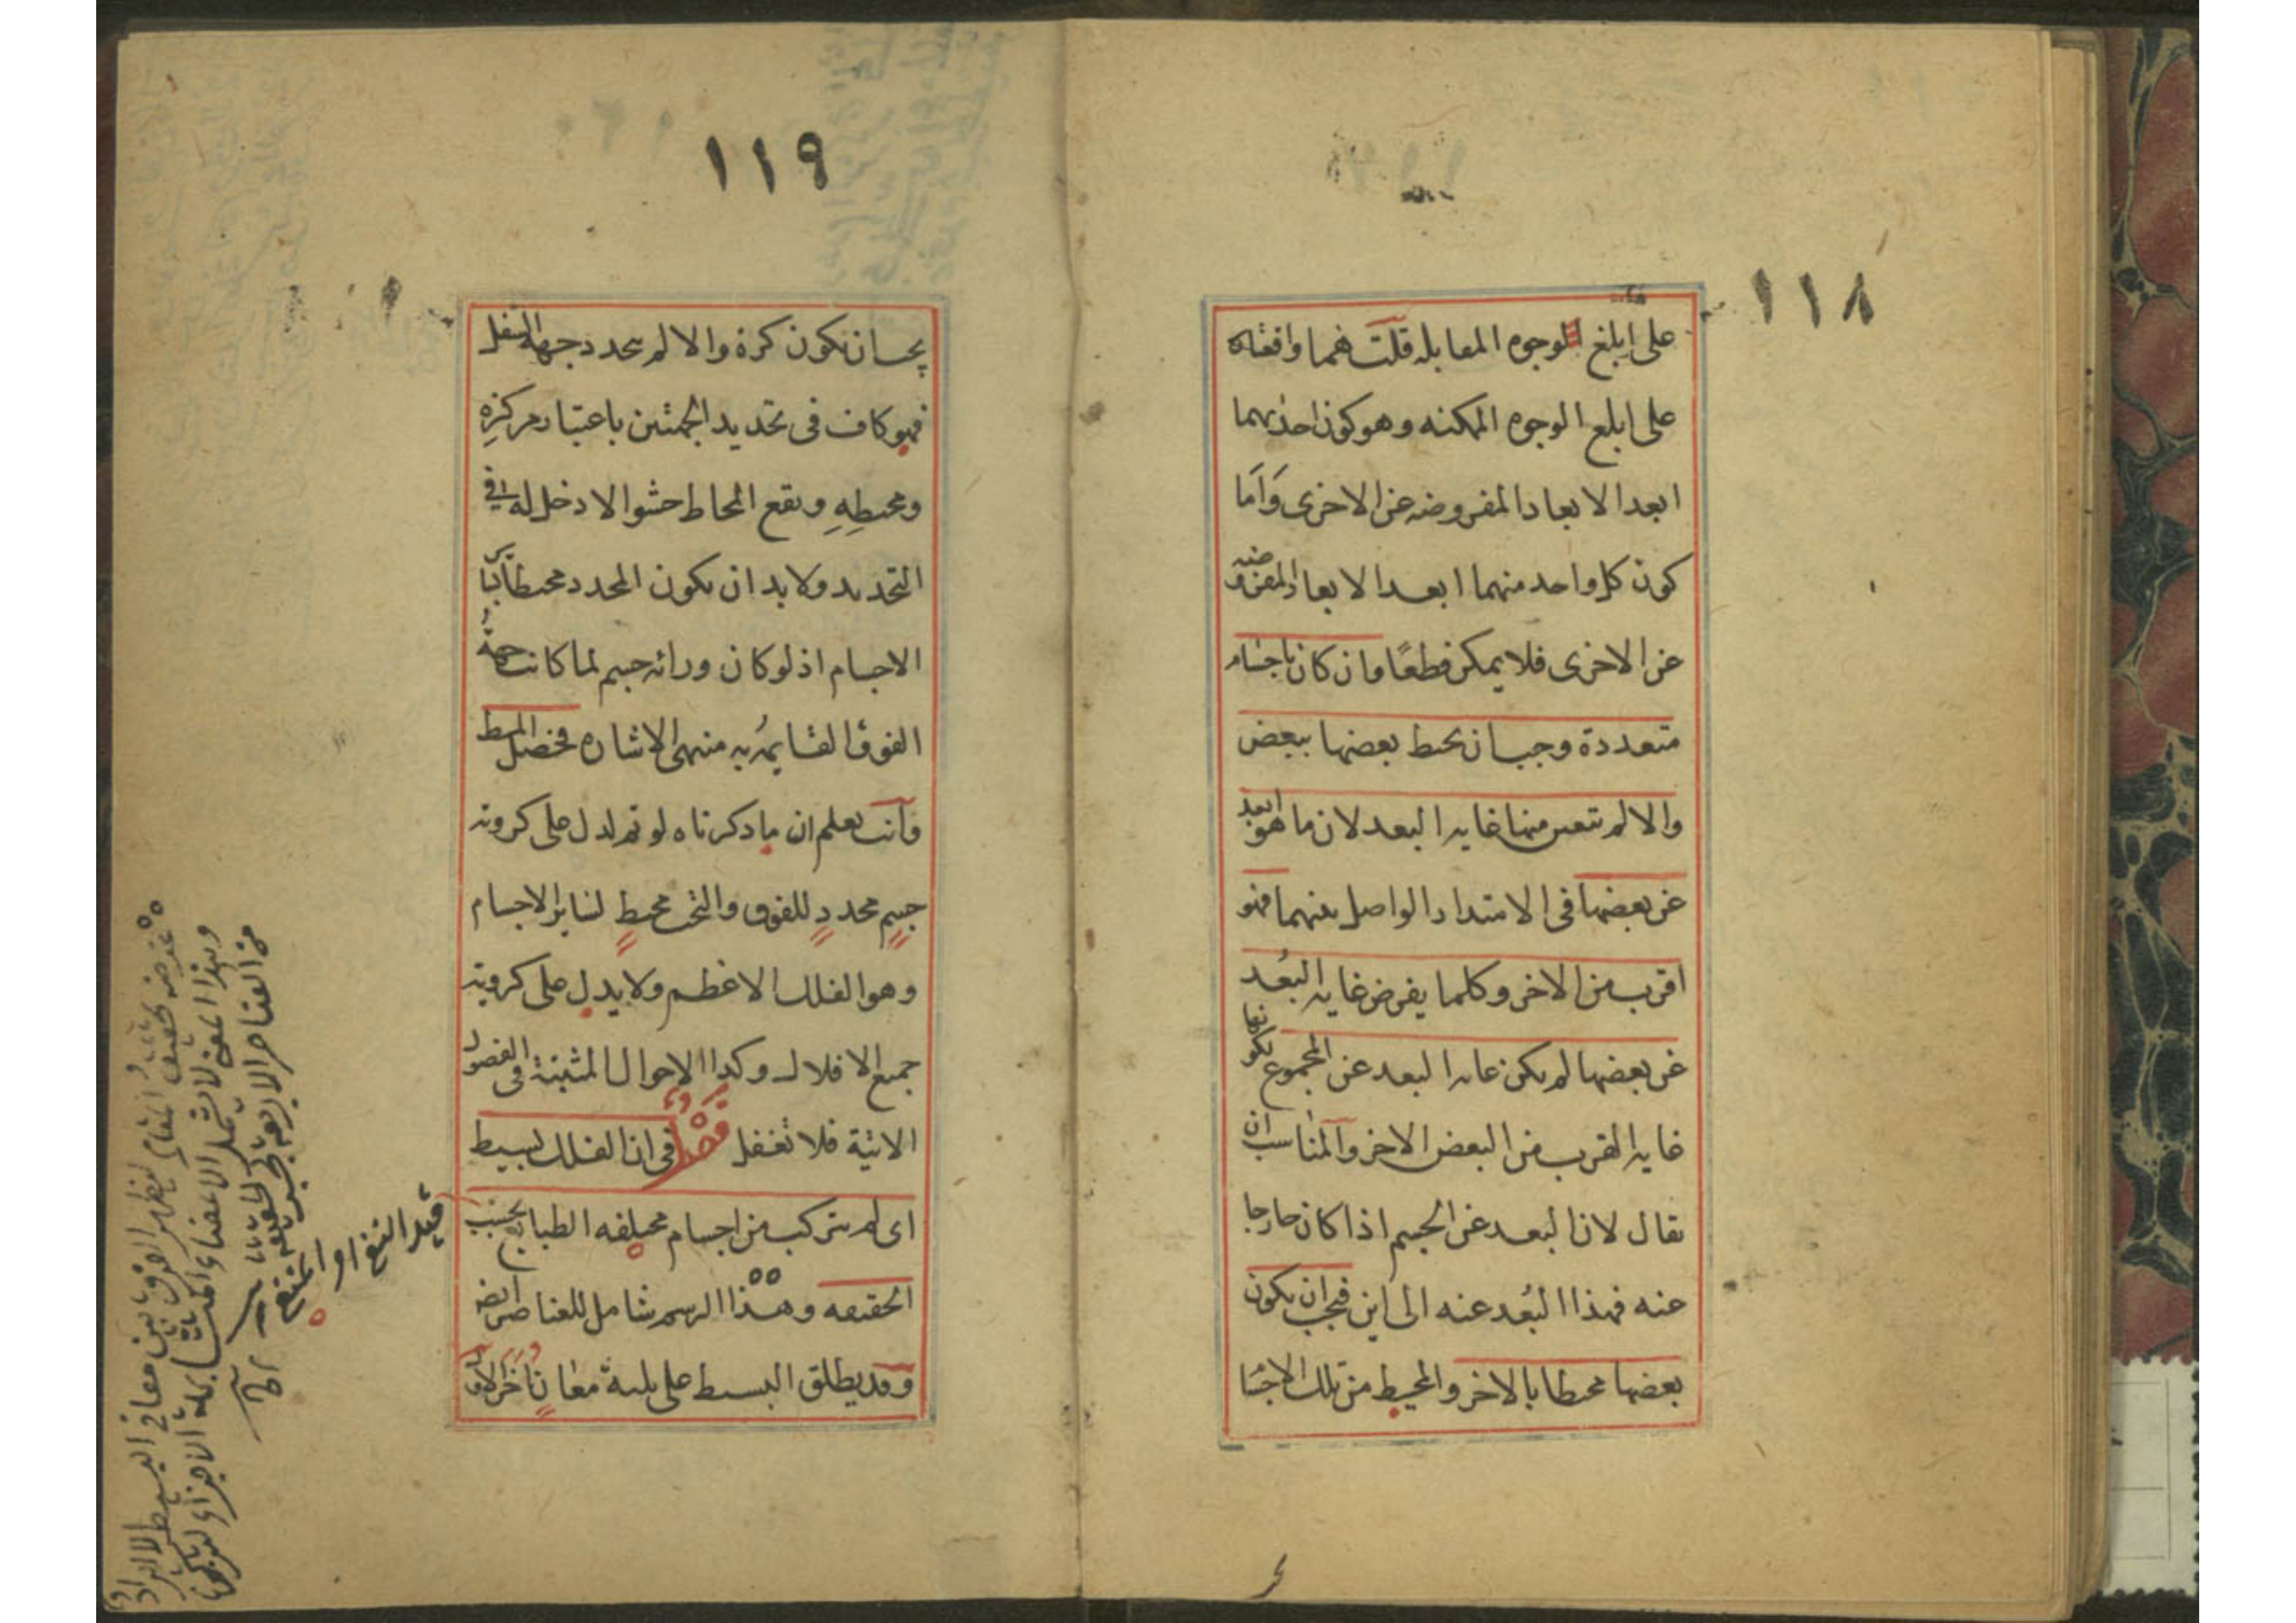 ١١٨
على ابلغ الوجوه المقابله قلت هما واقعتان
على ابلغ الوجوه الممكنه وهو كون احدٰيهما
ابعد الابعاد المفروضه عن الاخرى وَاَما
كون كل واحد منهما ابعد الابعاد المفروضه
عن الاخرى فلا يمكن قطعًا وان كان باجسام
متعددة وجب ان يحيط بعضها ببعض
والا لم تتعين منها غايه البعد لان ما هو ابعد
عن بعضها فى الامتداد الواصل بينهما فهو
اقرب من الاخر وكلما يفرض غايه البُعد
عن بعضها لم يكن غايه البعد عن المجموع
غايه القرب من البعض الاخر والمناسب ان
يقال لان البعد عن الجسم اذا كان خارجا
عنه فهذا البُعد عنه الى اين فيجب ان يكون
بعضها محيطا بالاخر والمحيط من تلك الاجسام
١١٩
يجب ان يكون كرة والا لم يتحدد جهة السفل
فهو كاف فى تحديد الجهتين باعتبار مركزِهِ
ومحيطِهِ ويقع المحاط حشوا لا دخل له فى
التحديد ولا بد ان يكون المحدد محيطا بسائر
الاجسام اذ لو كان ورائه جسم لما كانت جهة
الفوق القايمهُ به منتهى الاشاره فحصل المحيط
وانت تعلم ان ما ذكرناه لو تم لدل على كروية
جسم محددٍ للفوق والتحت محيطٍ لسائر الاجسام
وهو الفلك الاعظم ولا يدل على كروية
جميع الافلاك وكذا الاحوال المثبتة فى الفصول
الاتية فلا تغفل فصل فى ان الفلك بسيط
اى لم يتركب من اجسام مختلفه الطبايع بحسب
الحقيقه وهذا الرسم شامل للعناصر ايضا
وقد يطلق البسيط على ثلثة معان اخر الاول
قيد النفى او المنفى
غرضه تحقيق المقام ليظهر الفرق بين معانى البسيط
وبهذا المعنى لا تشمل الاعضاء المتشابهة الاجزاء
من العناصر الاربعة